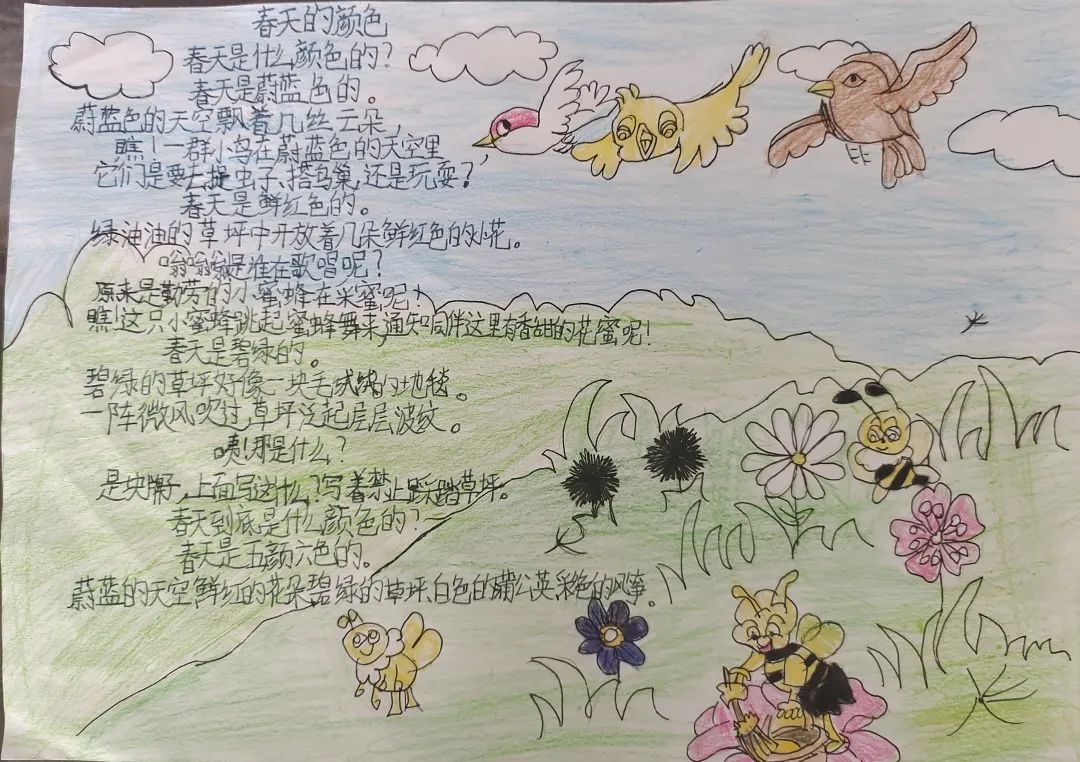 春天的颜色
春天是什么颜色的?
春天是蔚蓝色的。
蔚蓝色的天空飘着几丝云朵,
瞧!一群小鸟在蔚蓝色的天空里,
它们是要去捉虫子、搭鸟巢,还是玩耍?
春天是鲜红色的。
绿油油的草坪中开放着几朵鲜红色的小花。
嗡嗡嗡是谁在歌唱呢?
原来是勤劳的小蜜蜂在采蜜呢!
瞧!这只小蜜蜂跳起蜜蜂舞来,通知同伴这里有香甜的花蜜呢!
春天是碧绿的。
碧绿的草坪好像一块毛绒绒的地毯。
一阵微风吹过,草坪泛起层层波纹。
咦!那是什么?
是块牌子,上面写这什么?写着禁止踩踏草坪。
春天到底是什么颜色的?
春天是五颜六色的。
蔚蓝的天空,鲜红的花朵,碧绿的草坪,白色的蒲公英,彩色的风筝。